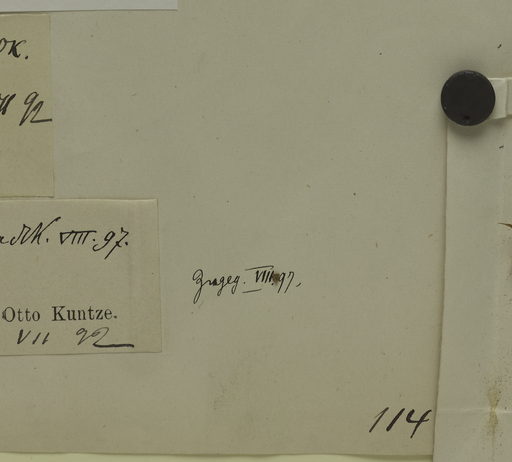 OK.
92
VIII. 97.
Otto Kuntze.
VII 92
VIII. 97.
114